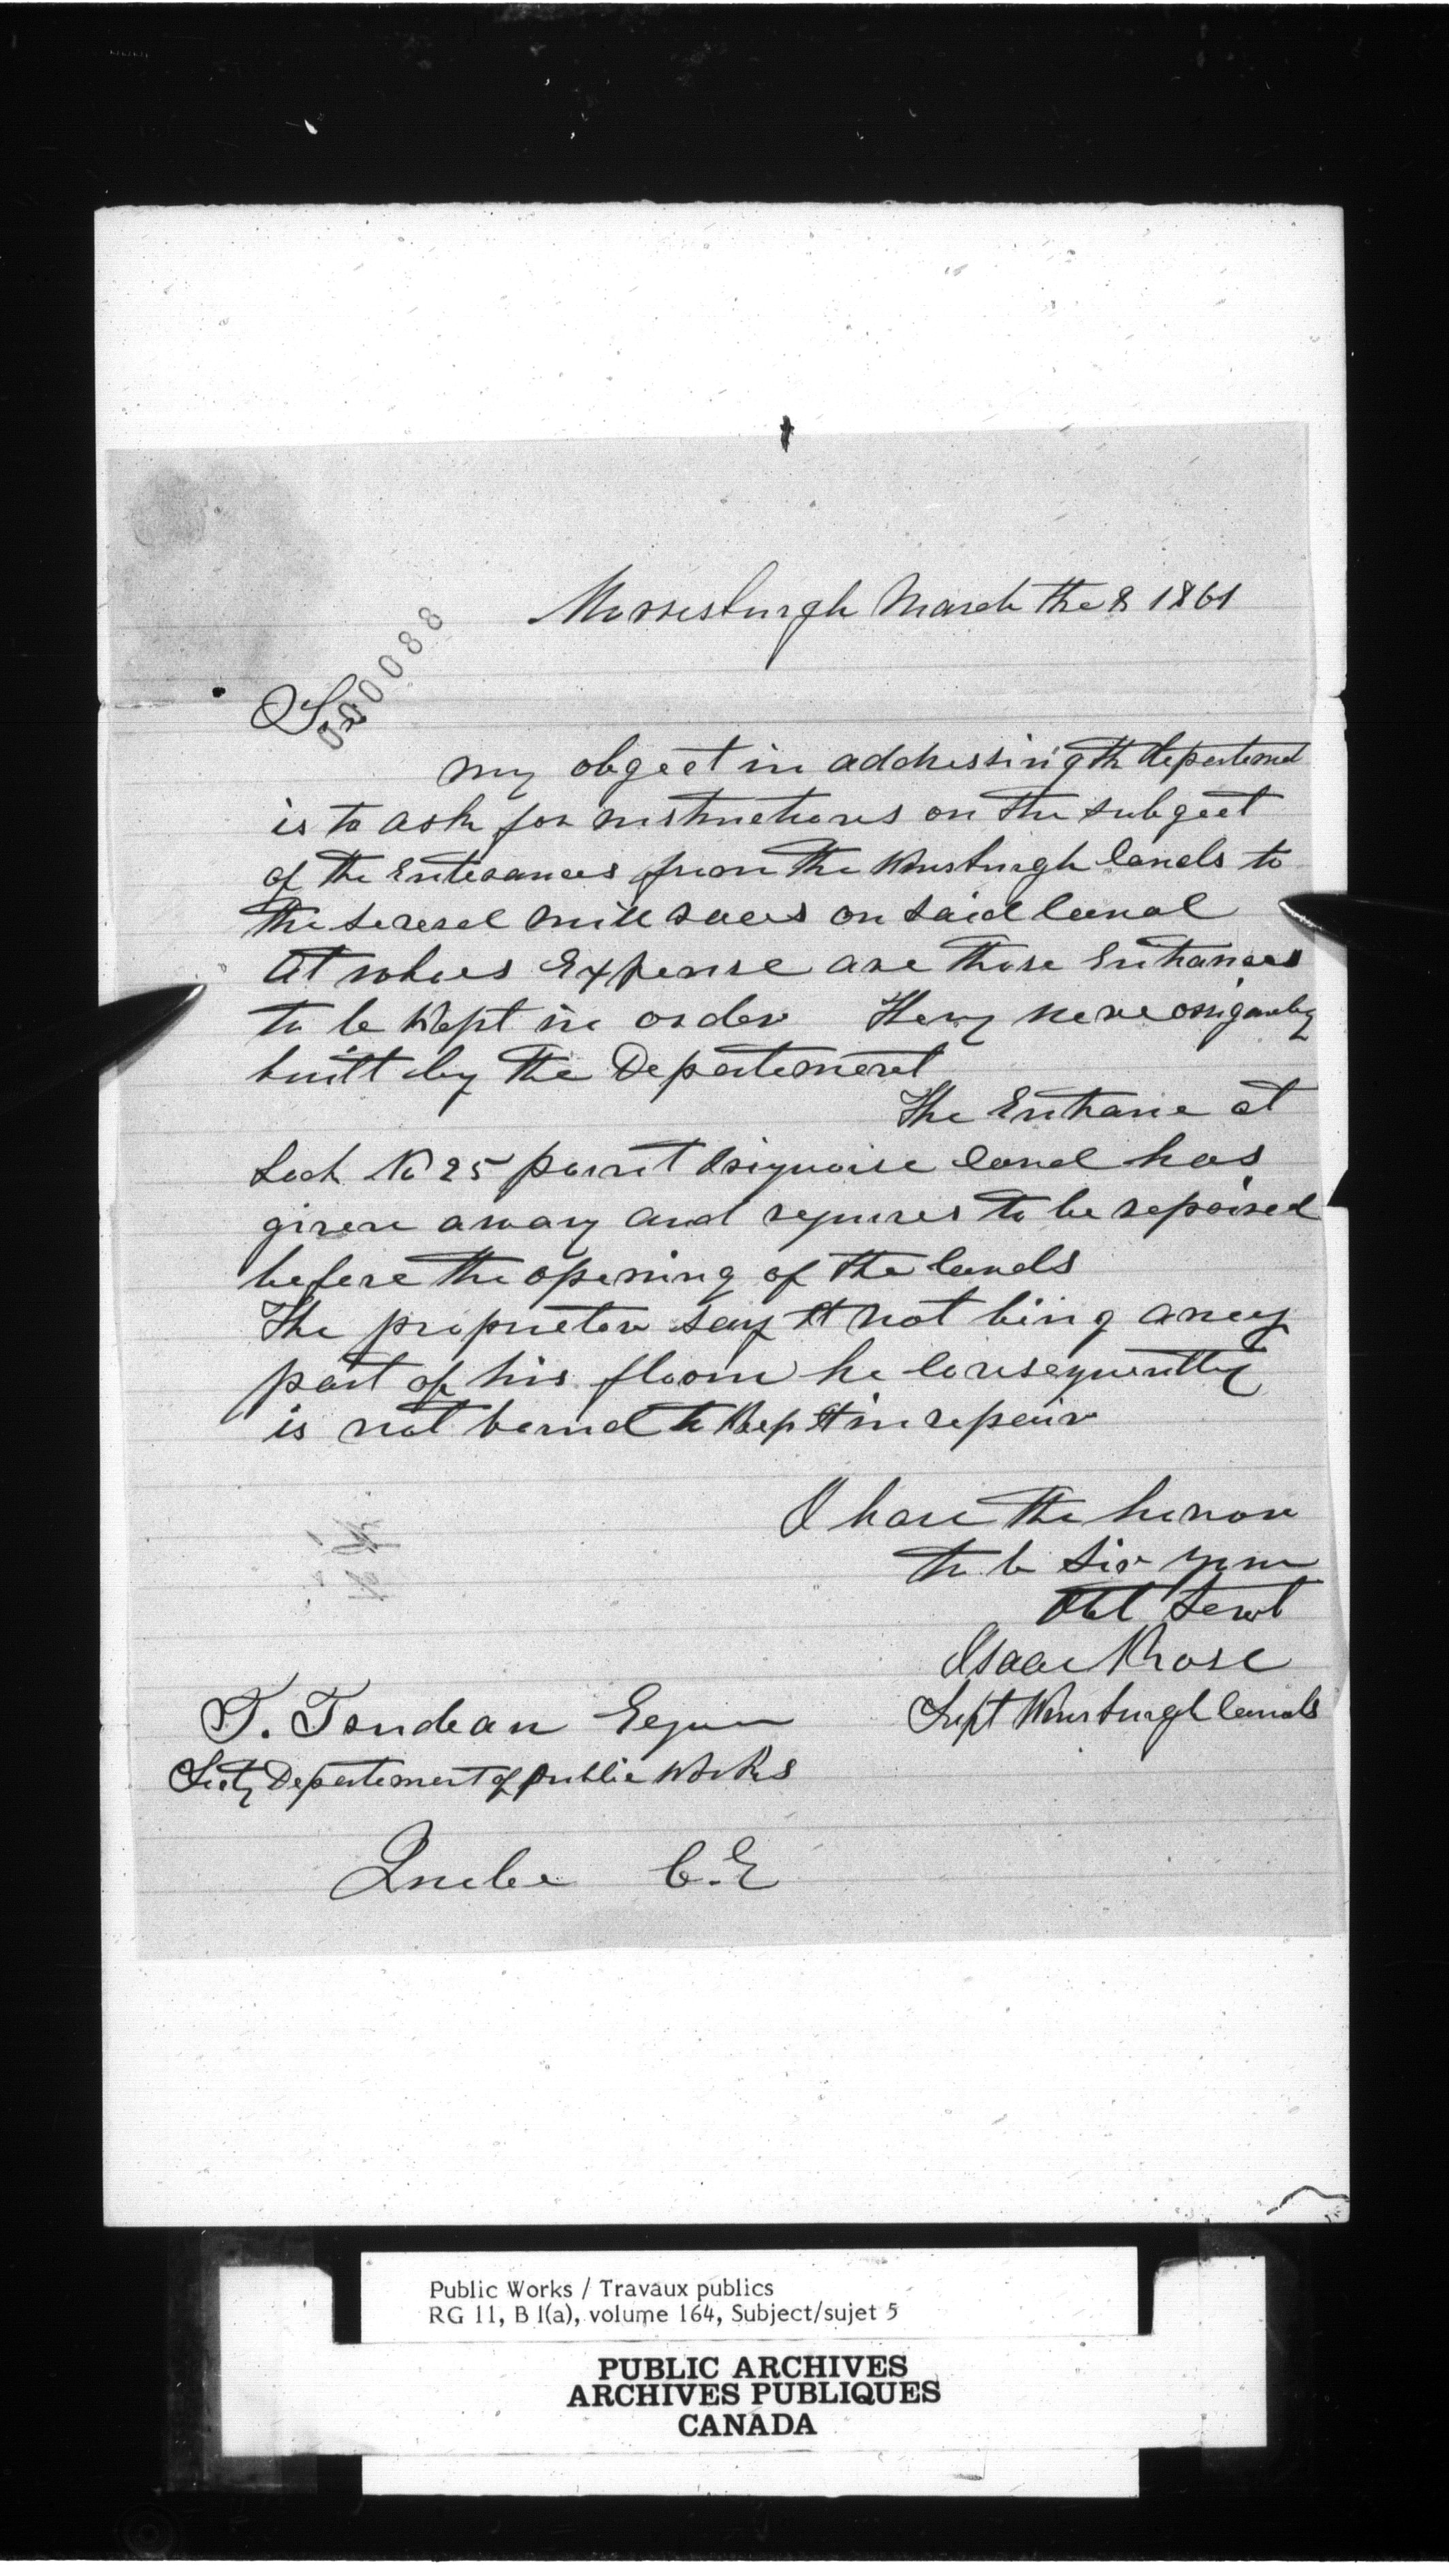 Morrisburgh March the 8 1861
000088
Sir
my obgect in addressing th Departemet
is to ask for instructions on the subgect
of the Enterances from the Wmsburgh Canals to
the several mill races on said Canal
At whoes Expense are those Entrances
to be Kept in order They were origanaly
built by the Departement
The Entrance at
Lock No 25 point Iriquoise Canal has
given away and requires to be repaired
before the opening of the Canals
The proprietor say it not being aney
part of his floom he Consequently
is not bound to Keep it in repair
I have the honor
to be Sir your
Obt Servt
Isaac N Rose
Supt Wmsburgh Canals
T. Trudeau Esquer
Secty Departement of public Works
Quebe C.E
Public Works / Travaux publics
RG 11, B 1(a), volume 164, Subject/sujet 5
PUBLIC ARCHIVES
ARCHIVES PUBLIQUES
CANADA